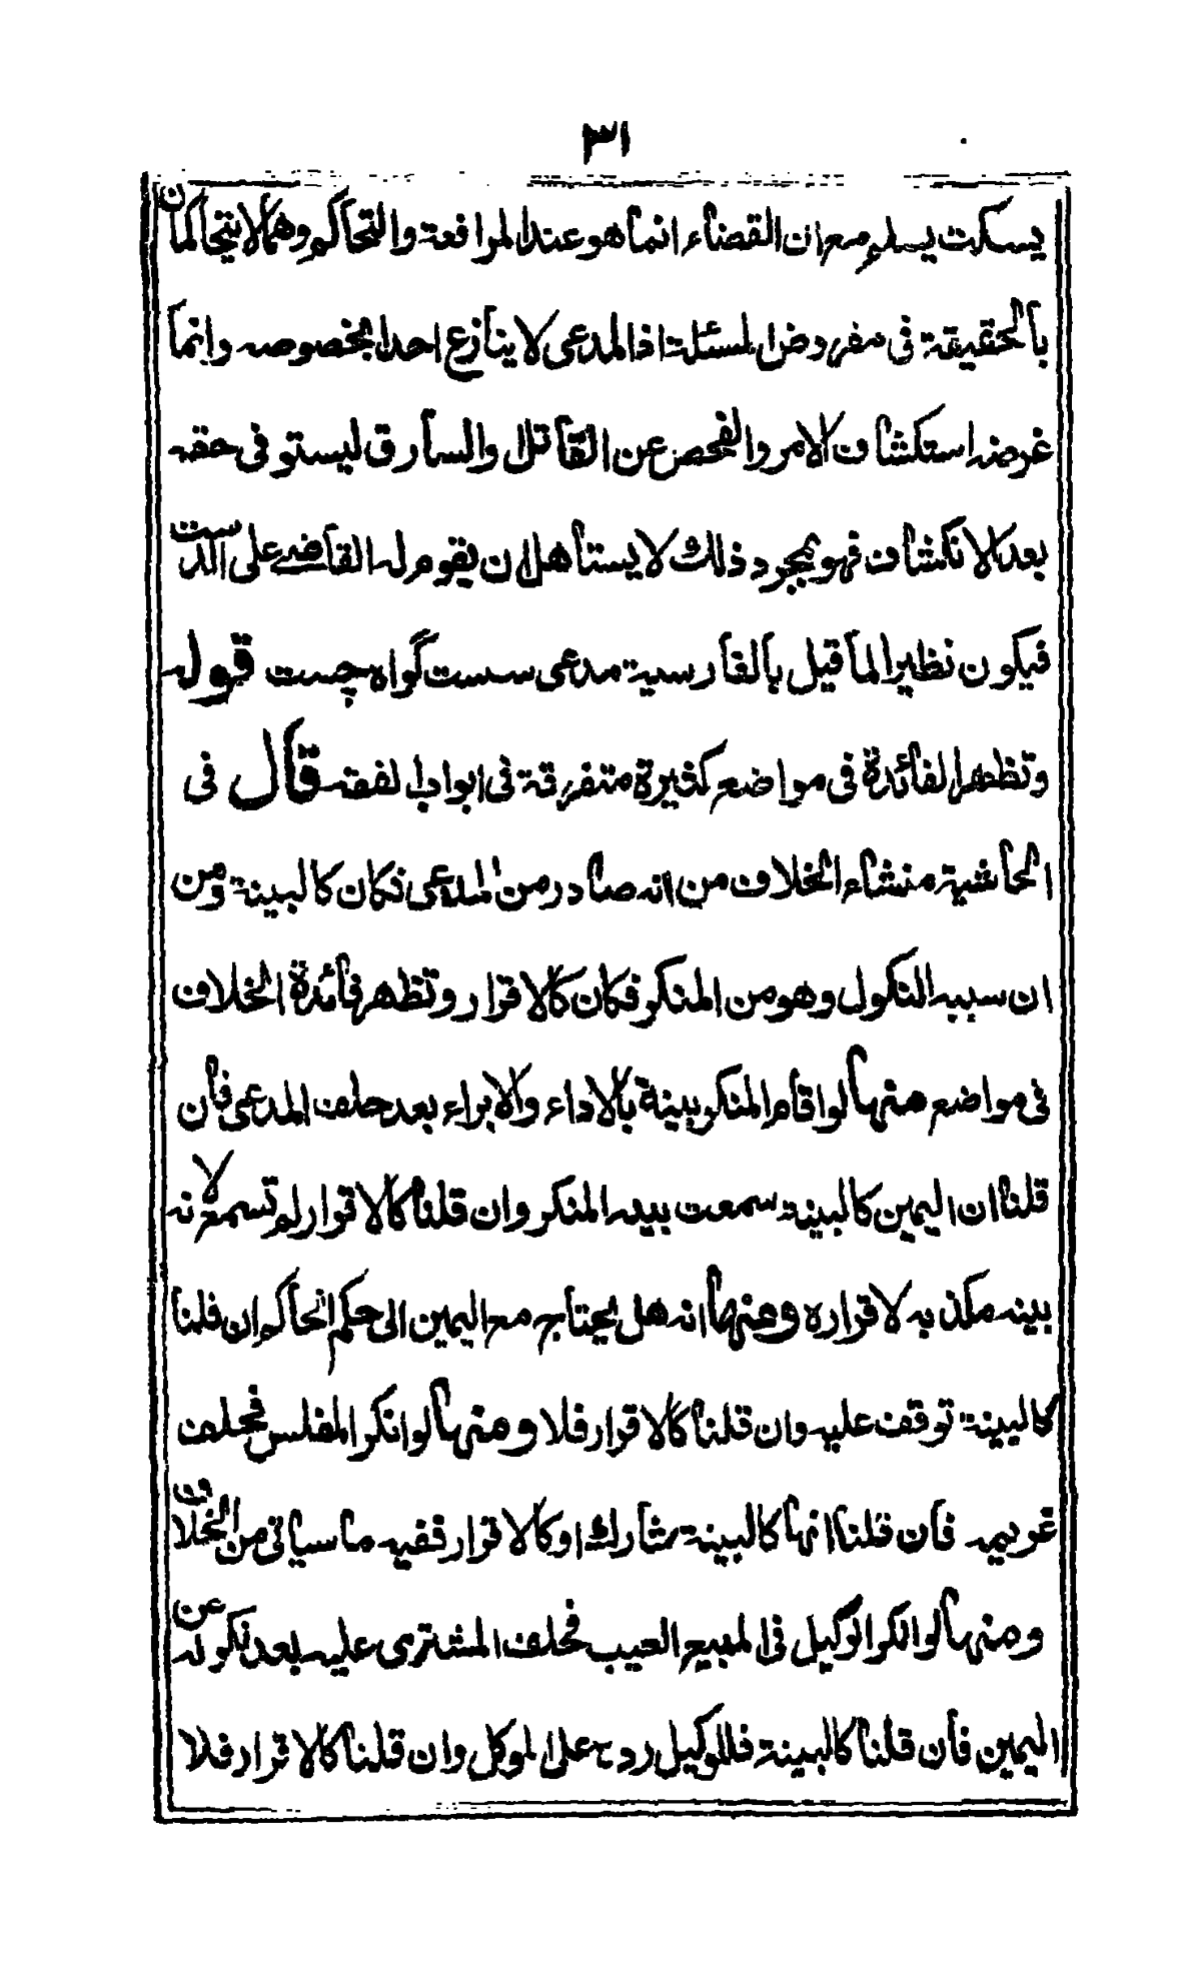 ٣١
يسكت يسلم مع ان القضاء انما هو عند المرافعة والتحاكم وهما لا يتحاكمان
بالحقيقة فى مفروض المسئلة اذ المدعى لا ينازع احدا بخصوصه وانما
غرضه استكشاف الامر والفحص عن القاتل والسارق ليستوفى حقه
بعد الانكشاف فهو بمجرد ذلك لا يستأهل ان يقوم له القاضے على الدست
فيكون نظيرا لما قيل بالفارسية مدعى سست گواه چست قوله
وتظهر الفائدة فى مواضع كثيرة متفرقة فى ابواب الفقه قال فى
الحاشية منشاء الخلاف من انه صادر من المدعى فكان كالبينة ومن
ان سببه النكول وهو من المنكر فكان كالاقرار وتظهر فائدة الخلاف
فى مواضع منها لو اقام المنكر بينة بالاداء والابراء بعد حلف المدعى فان
قلنا ان اليمين كالبينة سمعت بينه المنكر وان قلنا كالاقرار لم تسمع لانه
بينه مكذبه لاقراره ومنها انه هل يحتاج مع اليمين الى حكم الحاكم ان قلنا
كالبينة توقف عليه وان قلنا كالاقرار فلا ومنها لو انكر المفلس فحلف
غريمه فان قلنا انها كالبينة شارك او كالاقرار ففيه ما سياتى من الخلاف
ومنها لو انكر الوكيل فى المبيع العيب فحلف المشترى عليه بعد نكوله عن
اليمين فان قلنا كالبينة فللوكيل رده على الموكل وان قلنا كالاقرار فلا